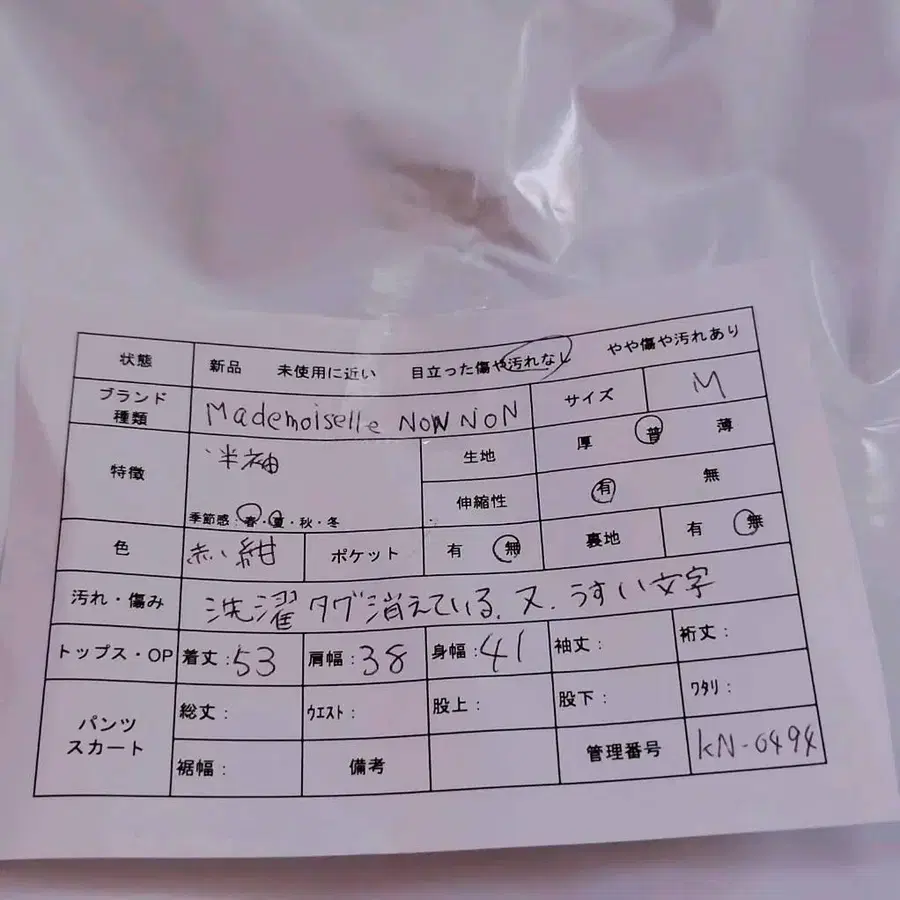 状態 新品 未使用に近い 目立った傷や汚れなし やや傷や汚れあり
ブランド種類 Mademoiselle NON NON サイズ M
特徴 半袖 生地 厚 普 薄
季節感:春・夏・秋・冬 伸縮性 有 無
色 赤い紺 ポケット 有 無 裏地 有 無
汚れ・傷み 洗濯タグ消えている、又、うすい文字
トップス・OP 着丈:53 肩幅:38 身幅:41 袖丈: 裄丈:
パンツスカート 総丈: ウエスト: 股上: 股下: ワタリ:
裾幅: 備考 管理番号 KN-0494